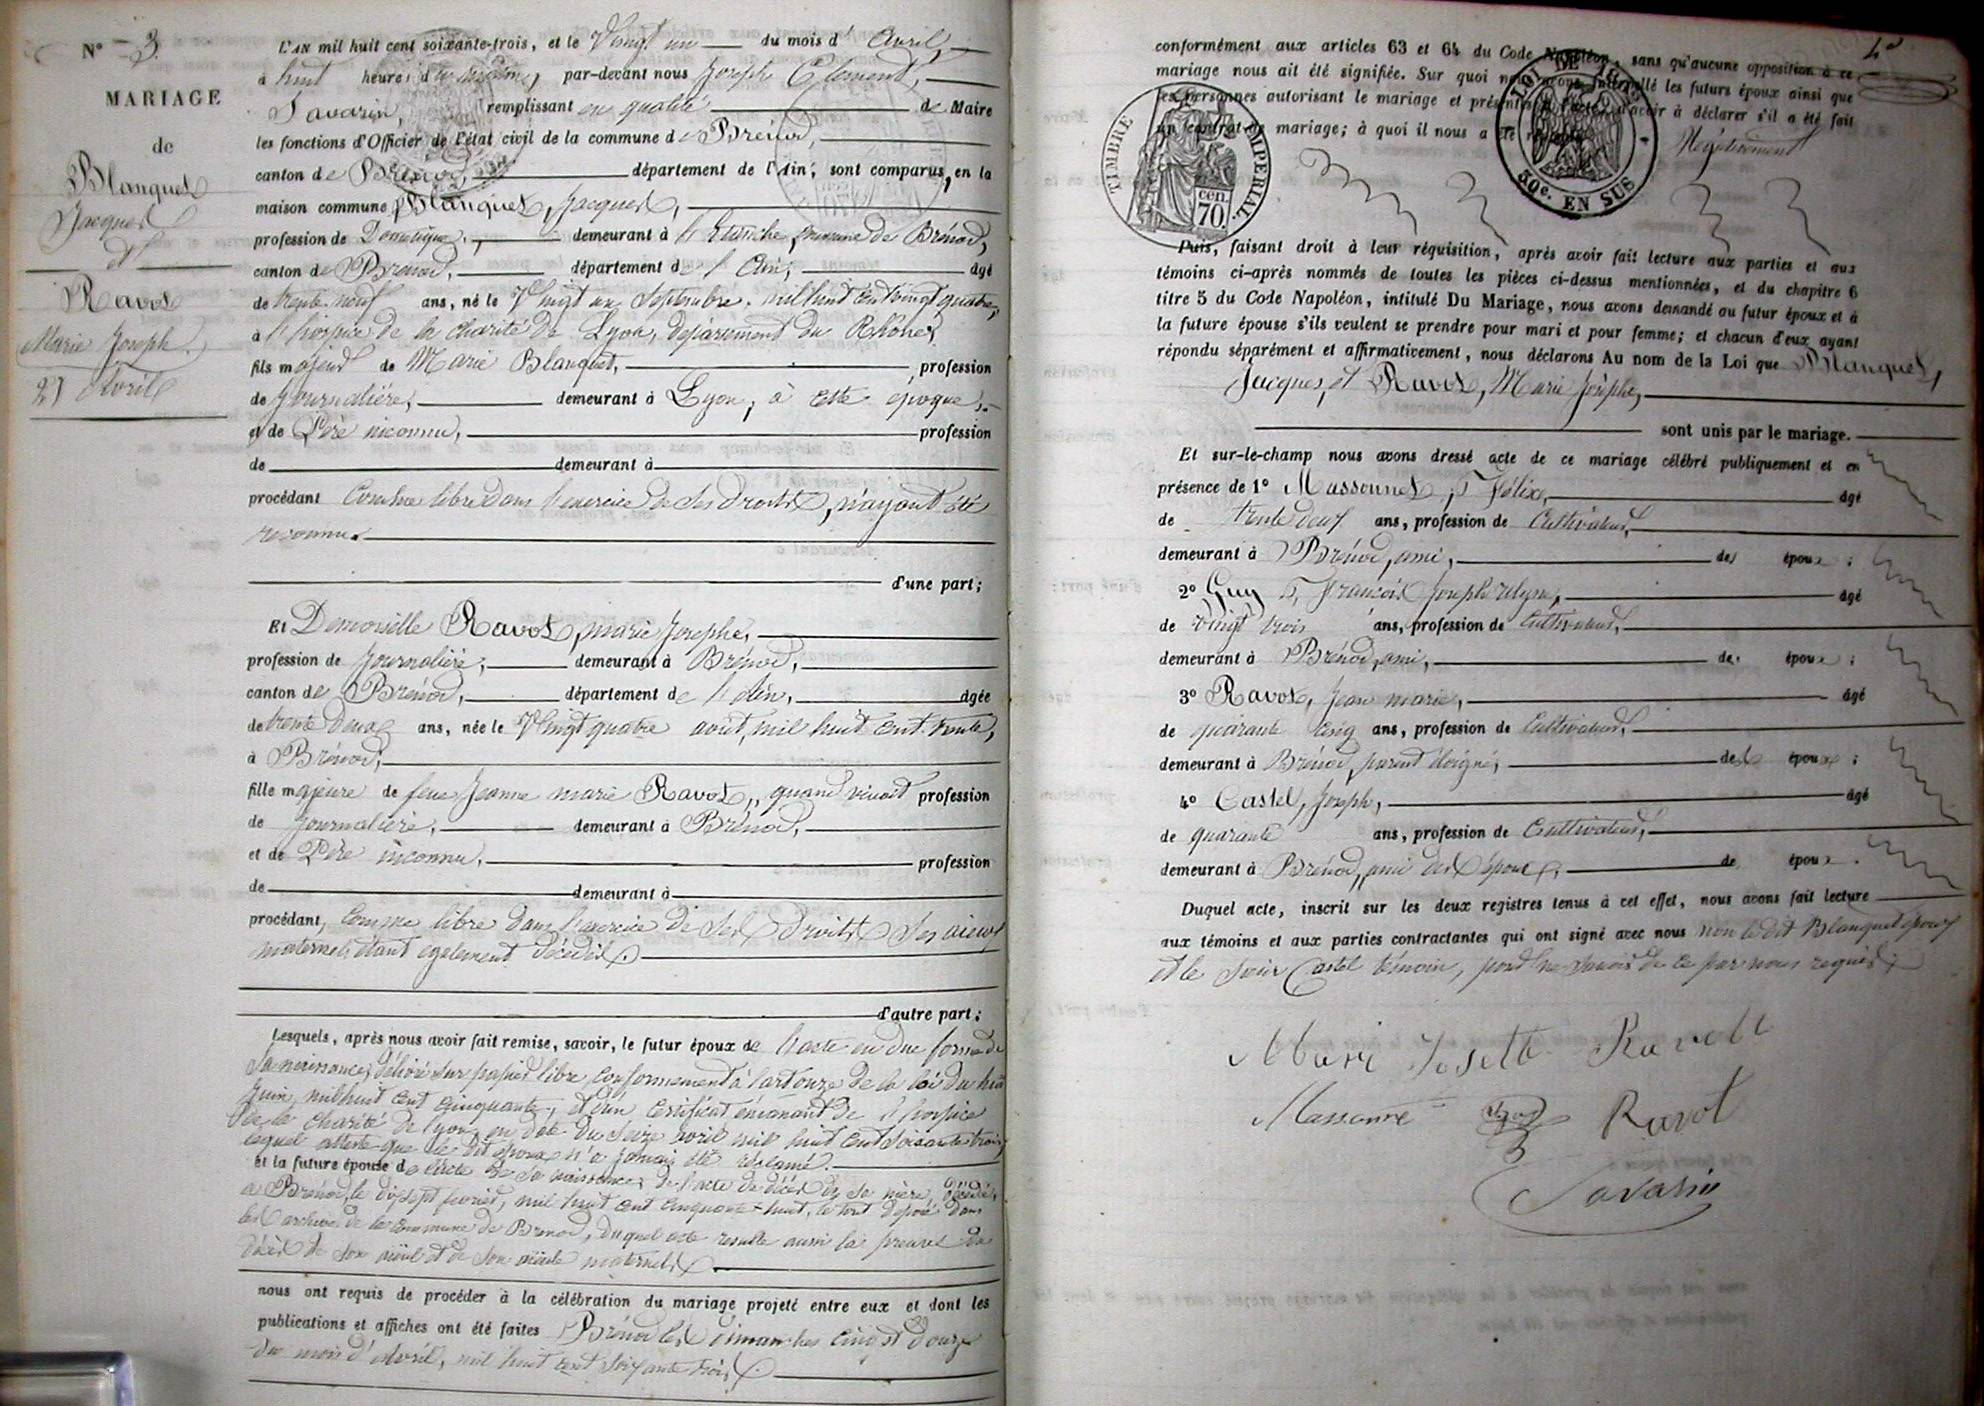 N° 3.
MARIAGE
de
Blanquet
Jacques
et
Ravot
Marie Joseph
21 Avril
L'AN mil huit cent soixante-trois, et le Vingt un du mois d' Avril,
à huit heures d par-devant nous Joseph Clément,
Savarin, remplissant en qualité de Maire
les fonctions d'Officier de l'état civil de la commune de Brénod,
canton de Brénod, département de l'Ain; sont comparus, en la
maison commune, Blanquet, Jacques,
profession de Domestique, demeurant à commune de Brénod,
canton de Brénod, département de l'Ain, âgé
de trente neuf ans, né le Vingt un Septembre mil huit cent vingt quatre,
à l'hospice de la charité de Lyon, département du Rhône,
fils majeur de Marie Blanquet, profession
de journalière, demeurant à Lyon, à cette époque,
et de Père inconnu, profession
de demeurant à
procédant comme libre dans l'exercice de ses droits, n'ayant été
reconnu.
d'une part;
Et Demoiselle Ravot, marie Josephe,
profession de journalière, demeurant à Brénod,
canton de Brénod, département de l'Ain, âgée
de trente deux ans, née le Vingt quatre août, mil huit cent trente,
à Brénod,
fille majeure de feue Jeanne marie Ravot, quand vivait profession
de journalière, demeurant à Brénod,
et de Père inconnu, profession
de demeurant à
procédant, comme libre dans l'exercice de ses droits ses aieux
maternels étant également décédés.
d'autre part;
Lesquels, après nous avoir fait remise, savoir, le futur époux de l'acte en due forme de
sa naissance, délivré sur papier libre conformément à l'art onze de la loi du huit
juin, mil huit cent cinquante, et d'un certificat émanant de l'hospice
de la charité de Lyon, en date du seize avril mil huit cent soixante trois,
lequel atteste que le dit époux n'a jamais été réclamé.
et la future épouse de l'acte de sa naissance, de l'acte de décès de sa mère, décédée,
à Brénod, le dix sept février, mil huit cent cinquante huit, le tout déposé dans
les archives de la commune de Brénod, duquel acte résulte aussi la preuve du
décès de son aïeul et de son aïeule maternels.
nous ont requis de procéder à la célébration du mariage projeté entre eux et dont les
publications et affiches ont été faites à Brénod les Dimanches cinq et douze
du mois d'Avril, mil huit cent soixante trois.
conformément aux articles 63 et 64 du Code Napoléon, sans qu'aucune opposition à ce
mariage nous ait été signifiée. Sur quoi nous avons interpellé les futurs époux ainsi que
les personnes autorisant le mariage et présentes à l'acte, d'avoir à déclarer s'il a été fait
un contrat de mariage; à quoi il nous a été répondu Négativement
TIMBRE IMPERIAL.
cen.
70.
50e. EN SUS
Puis, faisant droit à leur réquisition, après avoir fait lecture aux parties et aux
témoins ci-après nommés de toutes les pièces ci-dessus mentionnées, et du chapitre 6
titre 5 du Code Napoléon, intitulé Du Mariage, nous avons demandé au futur époux et à
la future épouse s'ils veulent se prendre pour mari et pour femme; et chacun d'eux ayant
répondu séparément et affirmativement, nous déclarons Au nom de la Loi que Blanquet,
Jacques, et Ravot, Marie Josèphe,
sont unis par le mariage.
Et sur-le-champ nous avons dressé acte de ce mariage célébré publiquement et en
présence de 1° Massonnet, Félix, âgé
de trente deux ans, profession de Cultivateur,
demeurant à Brénod, ami, des époux;
2° Guy François Joseph âgé
de vingt trois ans, profession de Cultivateur,
demeurant à Brénod, ami, des époux;
3° Ravot, Jean marie, âgé
de quarante cinq ans, profession de Cultivateur,
demeurant à Brénod, parent éloigné, des époux;
4° Castel, Joseph, âgé
de quarante ans, profession de Cultivateur,
demeurant à Brénod, ami des époux, de époux.
Duquel acte, inscrit sur les deux registres tenus à cet effet, nous avons fait lecture
aux témoins et aux parties contractantes qui ont signé avec nous non le dit Blanquet époux
et le sieur Castel témoin, pour ne savoir de ce par nous requis.
Marie Josette Ravot
Massonne Ravot
Savarin